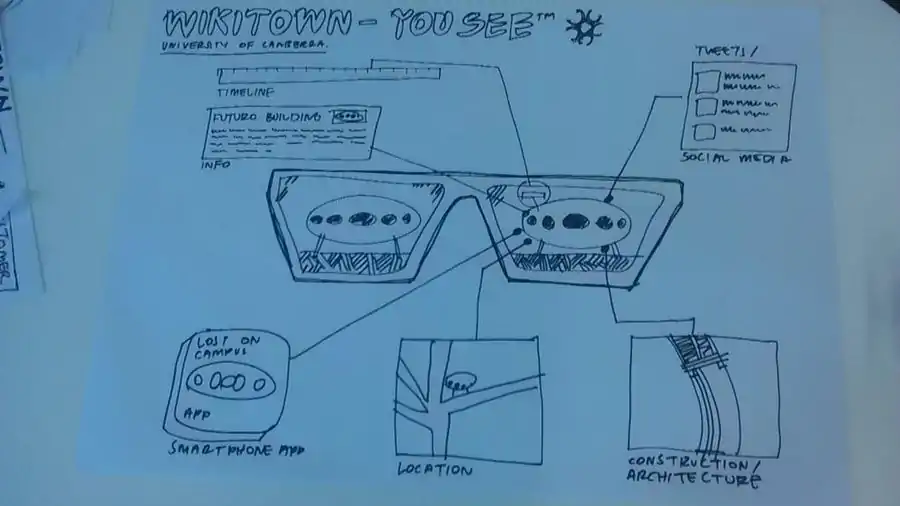 WIKITOWN - YOU SEE™
UNIVERSITY OF CANBERRA.
TIMELINE
FUTURO BUILDING
INFO
TWEETS/
SOCIAL MEDIA
LOST ON
CAMPUS
APP
SMARTPHONE APP
LOCATION
CONSTRUCTION/
ARCHITECTURE